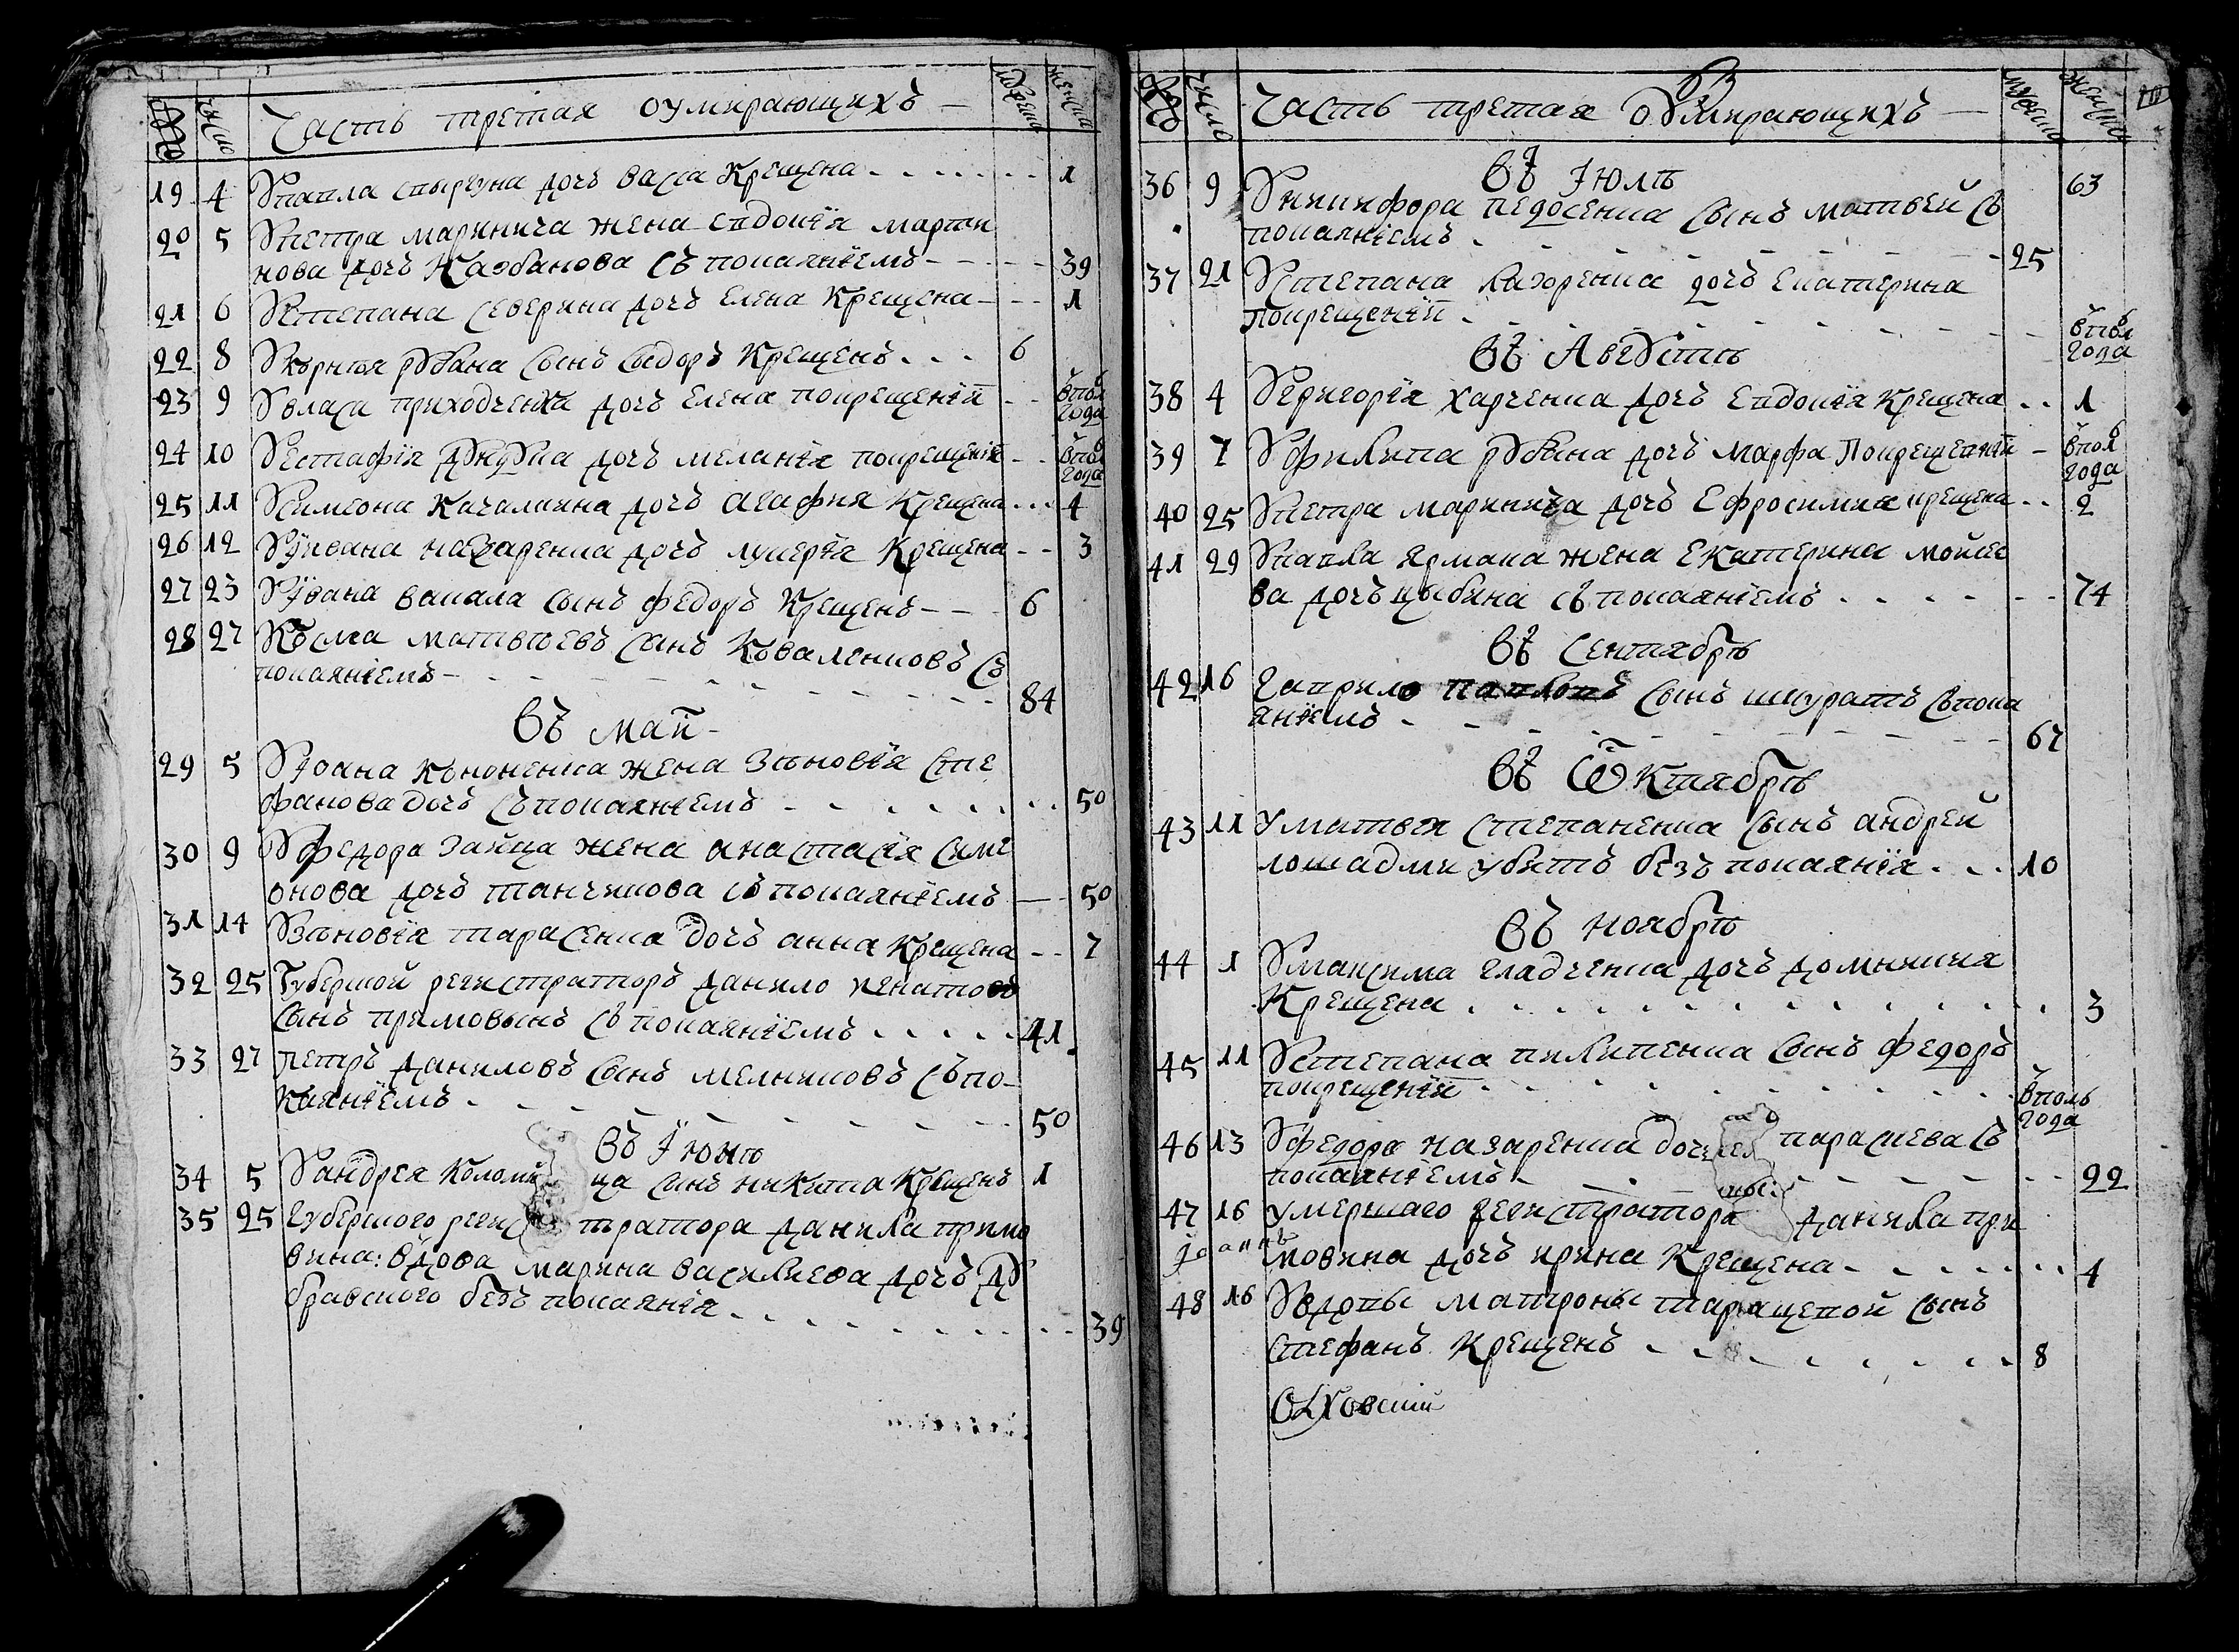 число Часть третая оумирающихъ мужеска женска
19 4 У павла спыргуна дочь васса крещена 1
20 5 У петра маринича жена евдокія марти
нова дочь съ покаяніемъ 39
21 6 У степана северина дочь елена крещена 1
22 8 У корнѣя рубана сынъ сыдоръ крещенъ 6
23 9 У власа приходченка дочь елена покрещеніи вполъ
года
24 10 У естафія дочь меланія покрещеніи вполъ
года
25 11 У симеона качалкина дочь агафия крещена 4
26 12 У ївана назаренка дочь лукерія крещена 3
27 23 У ївана вакала сынъ федоръ крещенъ 6
28 27 Косма матвѣевъ сынъ коваленковъ съ
покаяніемъ 84
Въ маи
29 5 У іоана кононенка жена зѣновія сте
фанова дочь съ покаяніемъ 50
30 9 У федора зайца жена анастасія симе
онова дочь танчикова съ покаяніемъ 50
31 14 У зѣновія тарасенка дочь анна крещена 7
32 25 Губерской регистраторъ данило игнатовъ
сынъ примовынъ съ покаяніемъ 41
33 27 петръ даниловъ сынъ мелниковъ съ по
каяніемъ 50
Въ Іюнѣ
34 5 У андрея коломи ца сынъ никита крещенъ 1
35 25 губерского регис тратора данила примо
вина: вдова марина василиева дочь ду
бравского безъ покаянія 39
число Часть третая оумирающихъ мужеска женска
Въ Іюлѣ
36 9 У никифора педосенка сынъ матвей съ 63
покаяніемъ 25
37 21 У степана лазоренка дочь екатерина
покрещеніи вполъ
года
Въ Августѣ
38 4 У григорія харченка дочь евдокія крещена 1
39 7 У филипа рубана дочь марфа покрещеніи вполъ
года
40 25 У петра маринича дочь ефросимия крещена 2
41 29 У павла ярмака жена екатерина мойсее
ва дочь цыбина съ покаяніемъ 74
Въ Сентябрѣ
42 16 гаврило павловъ сынъ шкуратъ съ пока
яніемъ 67
Въ Октябрѣ
43 11 У матвея степаненка сынъ андрей
лошадми убитъ безъ покаянія 10
Въ ноябрѣ
44 1 У максима гладченка дочь домникия
крещена 3
45 11 У степана пилипенка сынъ федоръ
покрещеніи вполъ
года
46 13 У федора назаренка дочь парасиева съ
покаяніемъ 22
47 16 умершаго регистратора данила при
іоаннъ мовина дочь ирина крещена 4
48 16 У вдовы матроны таращевой сынъ
стефанъ крещенъ 8